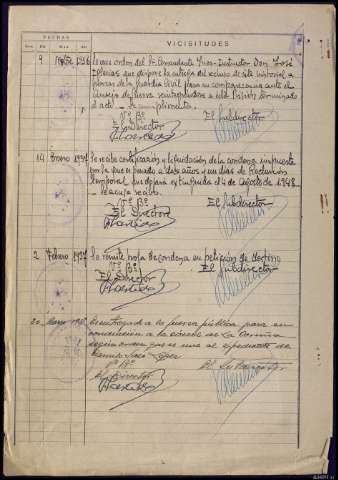 FECHAS
VICISITUDES
9 1936 Se orden del Sr. Comandante Juez-Instructor Don José
Iglesias que dispone la entrega del recluso de este historial a
fuerzas de la Guardia Civil para su comparecencia ante el
Consejo de Guerra a esta Prisión terminado
el acto. - Se cumplimenta.
Vº Bº
El Director
El Subdirector
14 Enero 1937 Se recibe certificación y liquidación de la condena impuesta
por la que es penado a doce años y un día de Reclusión
temporal que dejará extinguida el 4 de Agosto de 1948.-
Se acusa recibo.-
Vº Bº
El Director
El Subdirector
2 Febrero 1937 Se remite hoja de condena en petición de destino
Vº Bº
El Director
El Subdirector
20 Es entregado a la fuerza pública para su
conducción a la cárcel de La Coruña
según orden que se une al expediente de
Vº Bº
El Director
El Subdirector